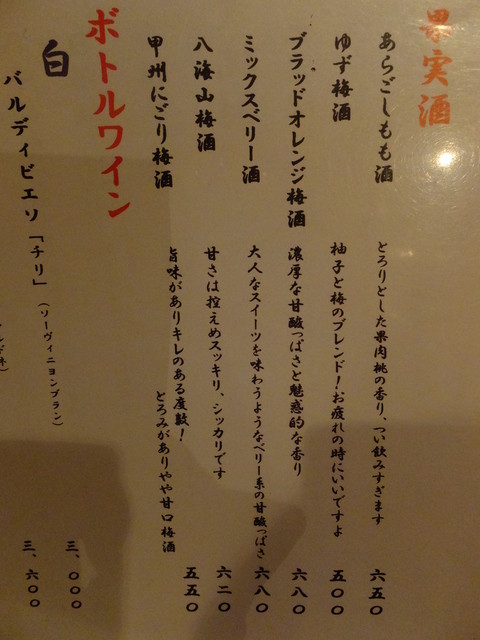 果実酒
あらごしもも酒 とろりとした果肉桃の香り、つい飲みすぎます 六五〇
ゆず梅酒 柚子と梅のブレンド！お疲れの時にいいですよ 五〇〇
ブラッドオレンジ梅酒 濃厚な甘酸っぱさと魅惑的な香り 六八〇
ミックスベリー酒 大人なスイーツを味わうようなベリー系の甘酸っぱさ 六八〇
八海山梅酒 甘さは控えめスッキリ、シッカリです 六二〇
甲州にごり梅酒 旨味がありキレのある度数！ 五五〇
とろみがありやや甘口梅酒
ボトルワイン
白 三、〇〇〇
バルディビエソ「チリ」（ソーヴィニヨンブラン） 三、六〇〇